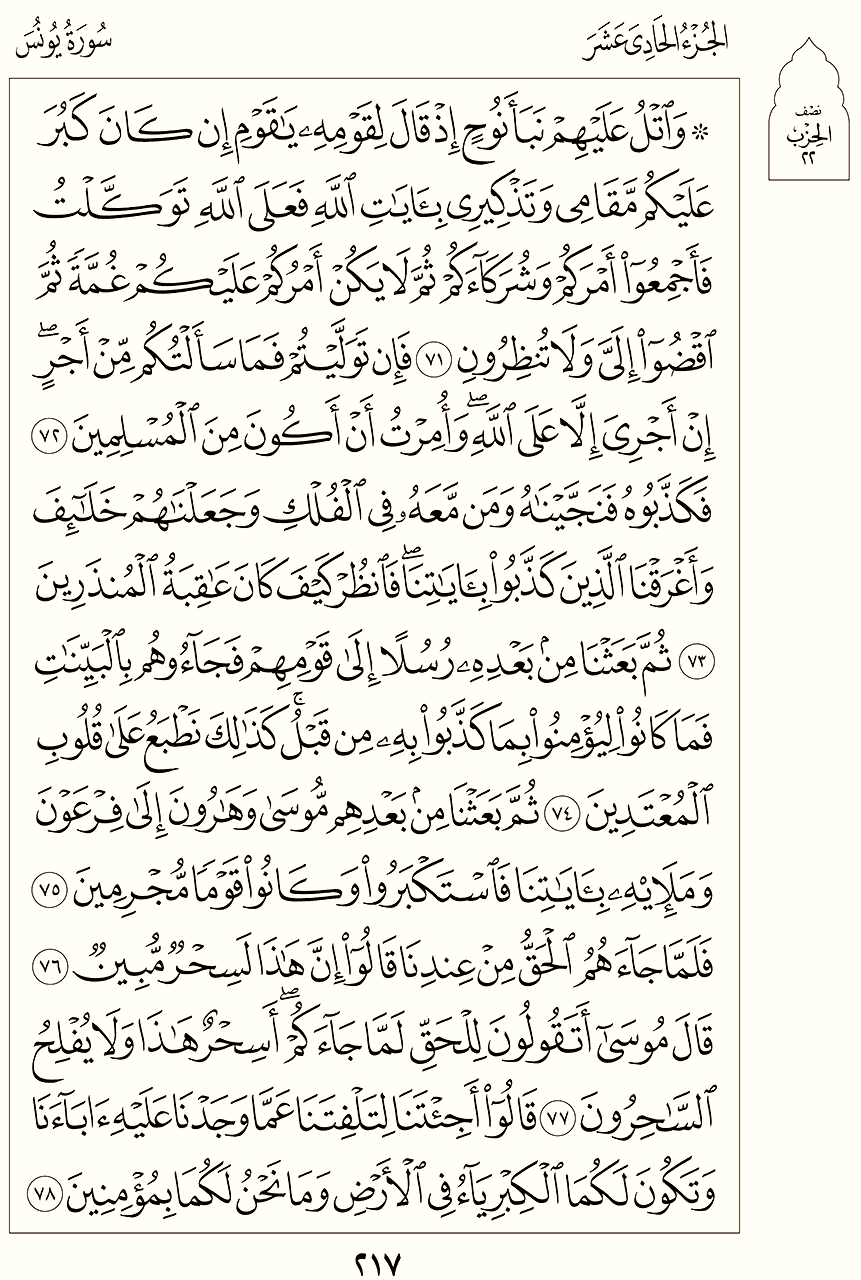 سُورَةُ يُونُسَ
الجُزْءُ الحَادِىَ عَشَرَ
نِصْف
الحِزْب
٢٢
۞ وَٱتۡلُ عَلَيۡهِمۡ نَبَأَ نُوحٍ إِذۡ قَالَ لِقَوۡمِهِۦ يَٰقَوۡمِ إِن كَانَ كَبُرَ
عَلَيۡكُم مَّقَامِي وَتَذۡكِيرِي بِـَٔايَٰتِ ٱللَّهِ فَعَلَى ٱللَّهِ تَوَكَّلۡتُ
فَأَجۡمِعُوٓاْ أَمۡرَكُمۡ وَشُرَكَآءَكُمۡ ثُمَّ لَا يَكُنۡ أَمۡرُكُمۡ عَلَيۡكُمۡ غُمَّةٗ ثُمَّ
ٱقۡضُوٓاْ إِلَيَّ وَلَا تُنظِرُونِ ٧١ فَإِن تَوَلَّيۡتُمۡ فَمَا سَأَلۡتُكُم مِّنۡ أَجۡرٍۖ
إِنۡ أَجۡرِيَ إِلَّا عَلَى ٱللَّهِۖ وَأُمِرۡتُ أَنۡ أَكُونَ مِنَ ٱلۡمُسۡلِمِينَ ٧٢
فَكَذَّبُوهُ فَنَجَّيۡنَٰهُ وَمَن مَّعَهُۥ فِي ٱلۡفُلۡكِ وَجَعَلۡنَٰهُمۡ خَلَٰٓئِفَ
وَأَغۡرَقۡنَا ٱلَّذِينَ كَذَّبُواْ بِـَٔايَٰتِنَاۖ فَٱنظُرۡ كَيۡفَ كَانَ عَٰقِبَةُ ٱلۡمُنذَرِينَ
٧٣ ثُمَّ بَعَثۡنَا مِنۢ بَعۡدِهِۦ رُسُلًا إِلَىٰ قَوۡمِهِمۡ فَجَآءُوهُم بِٱلۡبَيِّنَٰتِ
فَمَا كَانُواْ لِيُؤۡمِنُواْ بِمَا كَذَّبُواْ بِهِۦ مِن قَبۡلُۚ كَذَٰلِكَ نَطۡبَعُ عَلَىٰ قُلُوبِ
ٱلۡمُعۡتَدِينَ ٧٤ ثُمَّ بَعَثۡنَا مِنۢ بَعۡدِهِم مُّوسَىٰ وَهَٰرُونَ إِلَىٰ فِرۡعَوۡنَ
وَمَلَإِيْهِۦ بِـَٔايَٰتِنَا فَٱسۡتَكۡبَرُواْ وَكَانُواْ قَوۡمٗا مُّجۡرِمِينَ ٧٥
فَلَمَّا جَآءَهُمُ ٱلۡحَقُّ مِنۡ عِندِنَا قَالُوٓاْ إِنَّ هَٰذَا لَسِحۡرٞ مُّبِينٞ ٧٦
قَالَ مُوسَىٰٓ أَتَقُولُونَ لِلۡحَقِّ لَمَّا جَآءَكُمۡۖ أَسِحۡرٌ هَٰذَا وَلَا يُفۡلِحُ
ٱلسَّٰحِرُونَ ٧٧ قَالُوٓاْ أَجِئۡتَنَا لِتَلۡفِتَنَا عَمَّا وَجَدۡنَا عَلَيۡهِ ءَابَآءَنَا
وَتَكُونَ لَكُمَا ٱلۡكِبۡرِيَآءُ فِي ٱلۡأَرۡضِ وَمَا نَحۡنُ لَكُمَا بِمُؤۡمِنِينَ ٧٨
٢١٧